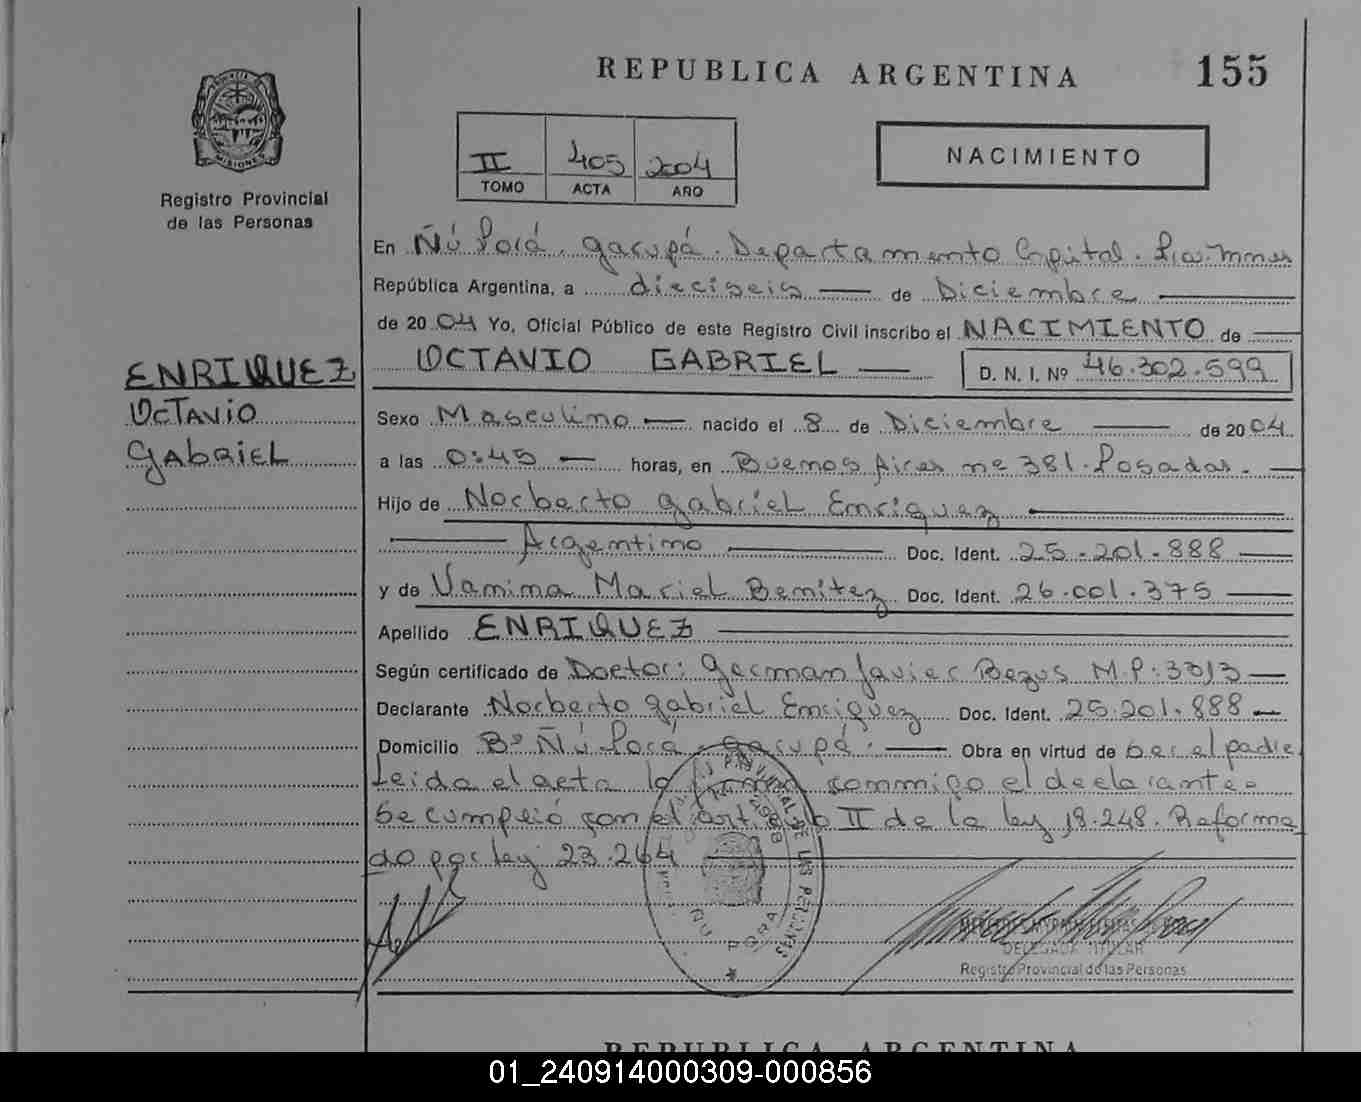 REPUBLICA ARGENTINA 155
II 405 2004
TOMO ACTA AÑO
NACIMIENTO
MISIONES
Registro Provincial
de las Personas
ENRIQUEZ
OCTAVIO
GABRIEL
En Ñú Porá. Garupá. Departamento Capital. Pcia. Mnes
República Argentina, a dieciseis de Diciembre
de 2004 Yo, Oficial Público de este Registro Civil inscribo el NACIMIENTO de
OCTAVIO GABRIEL D. N. I. Nº 46.302.599
Sexo Masculino nacido el 8 de Diciembre de 2004
a las 0:45 horas, en Buenos Aires nº 381. Posadas.
Hijo de Norberto Gabriel Enriquez
Argentino Doc. Ident. 25.201.888
y de Vanina Mariel Benítez Doc. Ident. 26.001.375
Apellido ENRIQUEZ
Según certificado de Doctor: German Javier Bezus M.P: 3313
Declarante Norberto Gabriel Enriquez Doc. Ident. 25.201.888
Domicilio Bº Ñú Porá. Garupá. Obra en virtud de ser el padre
Leida el acta la firma conmigo el declarante.
Se cumplió con el artículo II de la ley 18.248. Reforma
do por ley 23.264
PROVINCIAL DE LAS PERSONAS
ÑU PORA
DELEGADA TITULAR
Registro Provincial de las Personas
REPUBLICA ARGENTINA
01_240914000309-000856